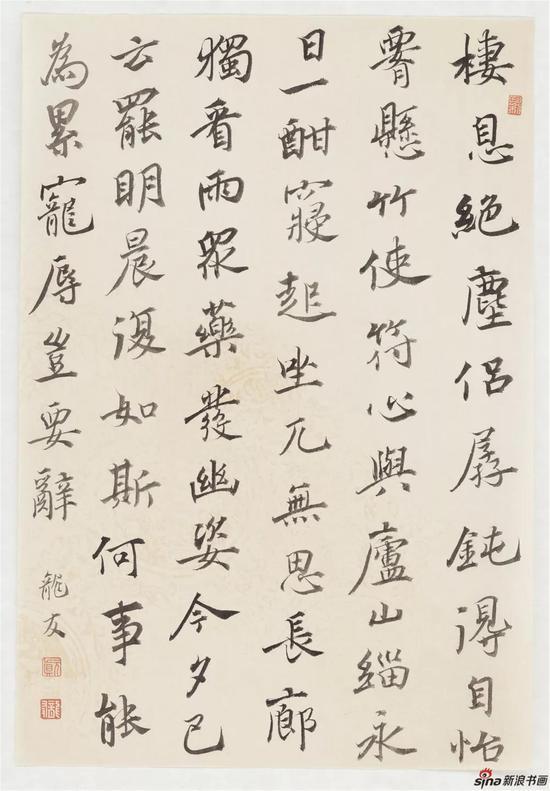 棲息絕塵侶孱鈍得自怡
腰懸竹使符心與廬山緇永
日一酣寢起坐兀無思長廊
獨看雨眾藥發幽姿今夕已
云罷明晨復如斯何事能
為累寵辱豈要辭
龍友
sina 新浪书画